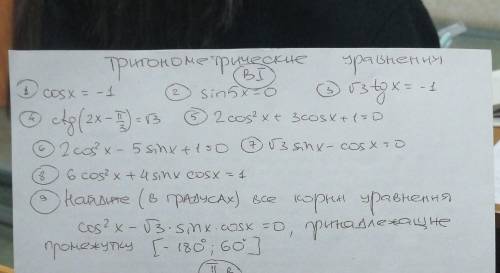 Тригонометрические уравнения
ВI
① cosx = -1 ② sin5x=0 ③ √3 tgx = -1
④ ctg(2x - π/3) = √3 ⑤ 2cos²x + 3cosx + 1 = 0
⑥ 2cos²x - 5sinx + 1 = 0 ⑦ √3 sinx - cosx = 0
⑧ 6cos²x + 4sinx cosx = 1
⑨ Найдите (в градусах) все корни уравнения
cos²x - √3·sinx·cosx = 0, принадлежащие
промежутку [-180°; 60°]